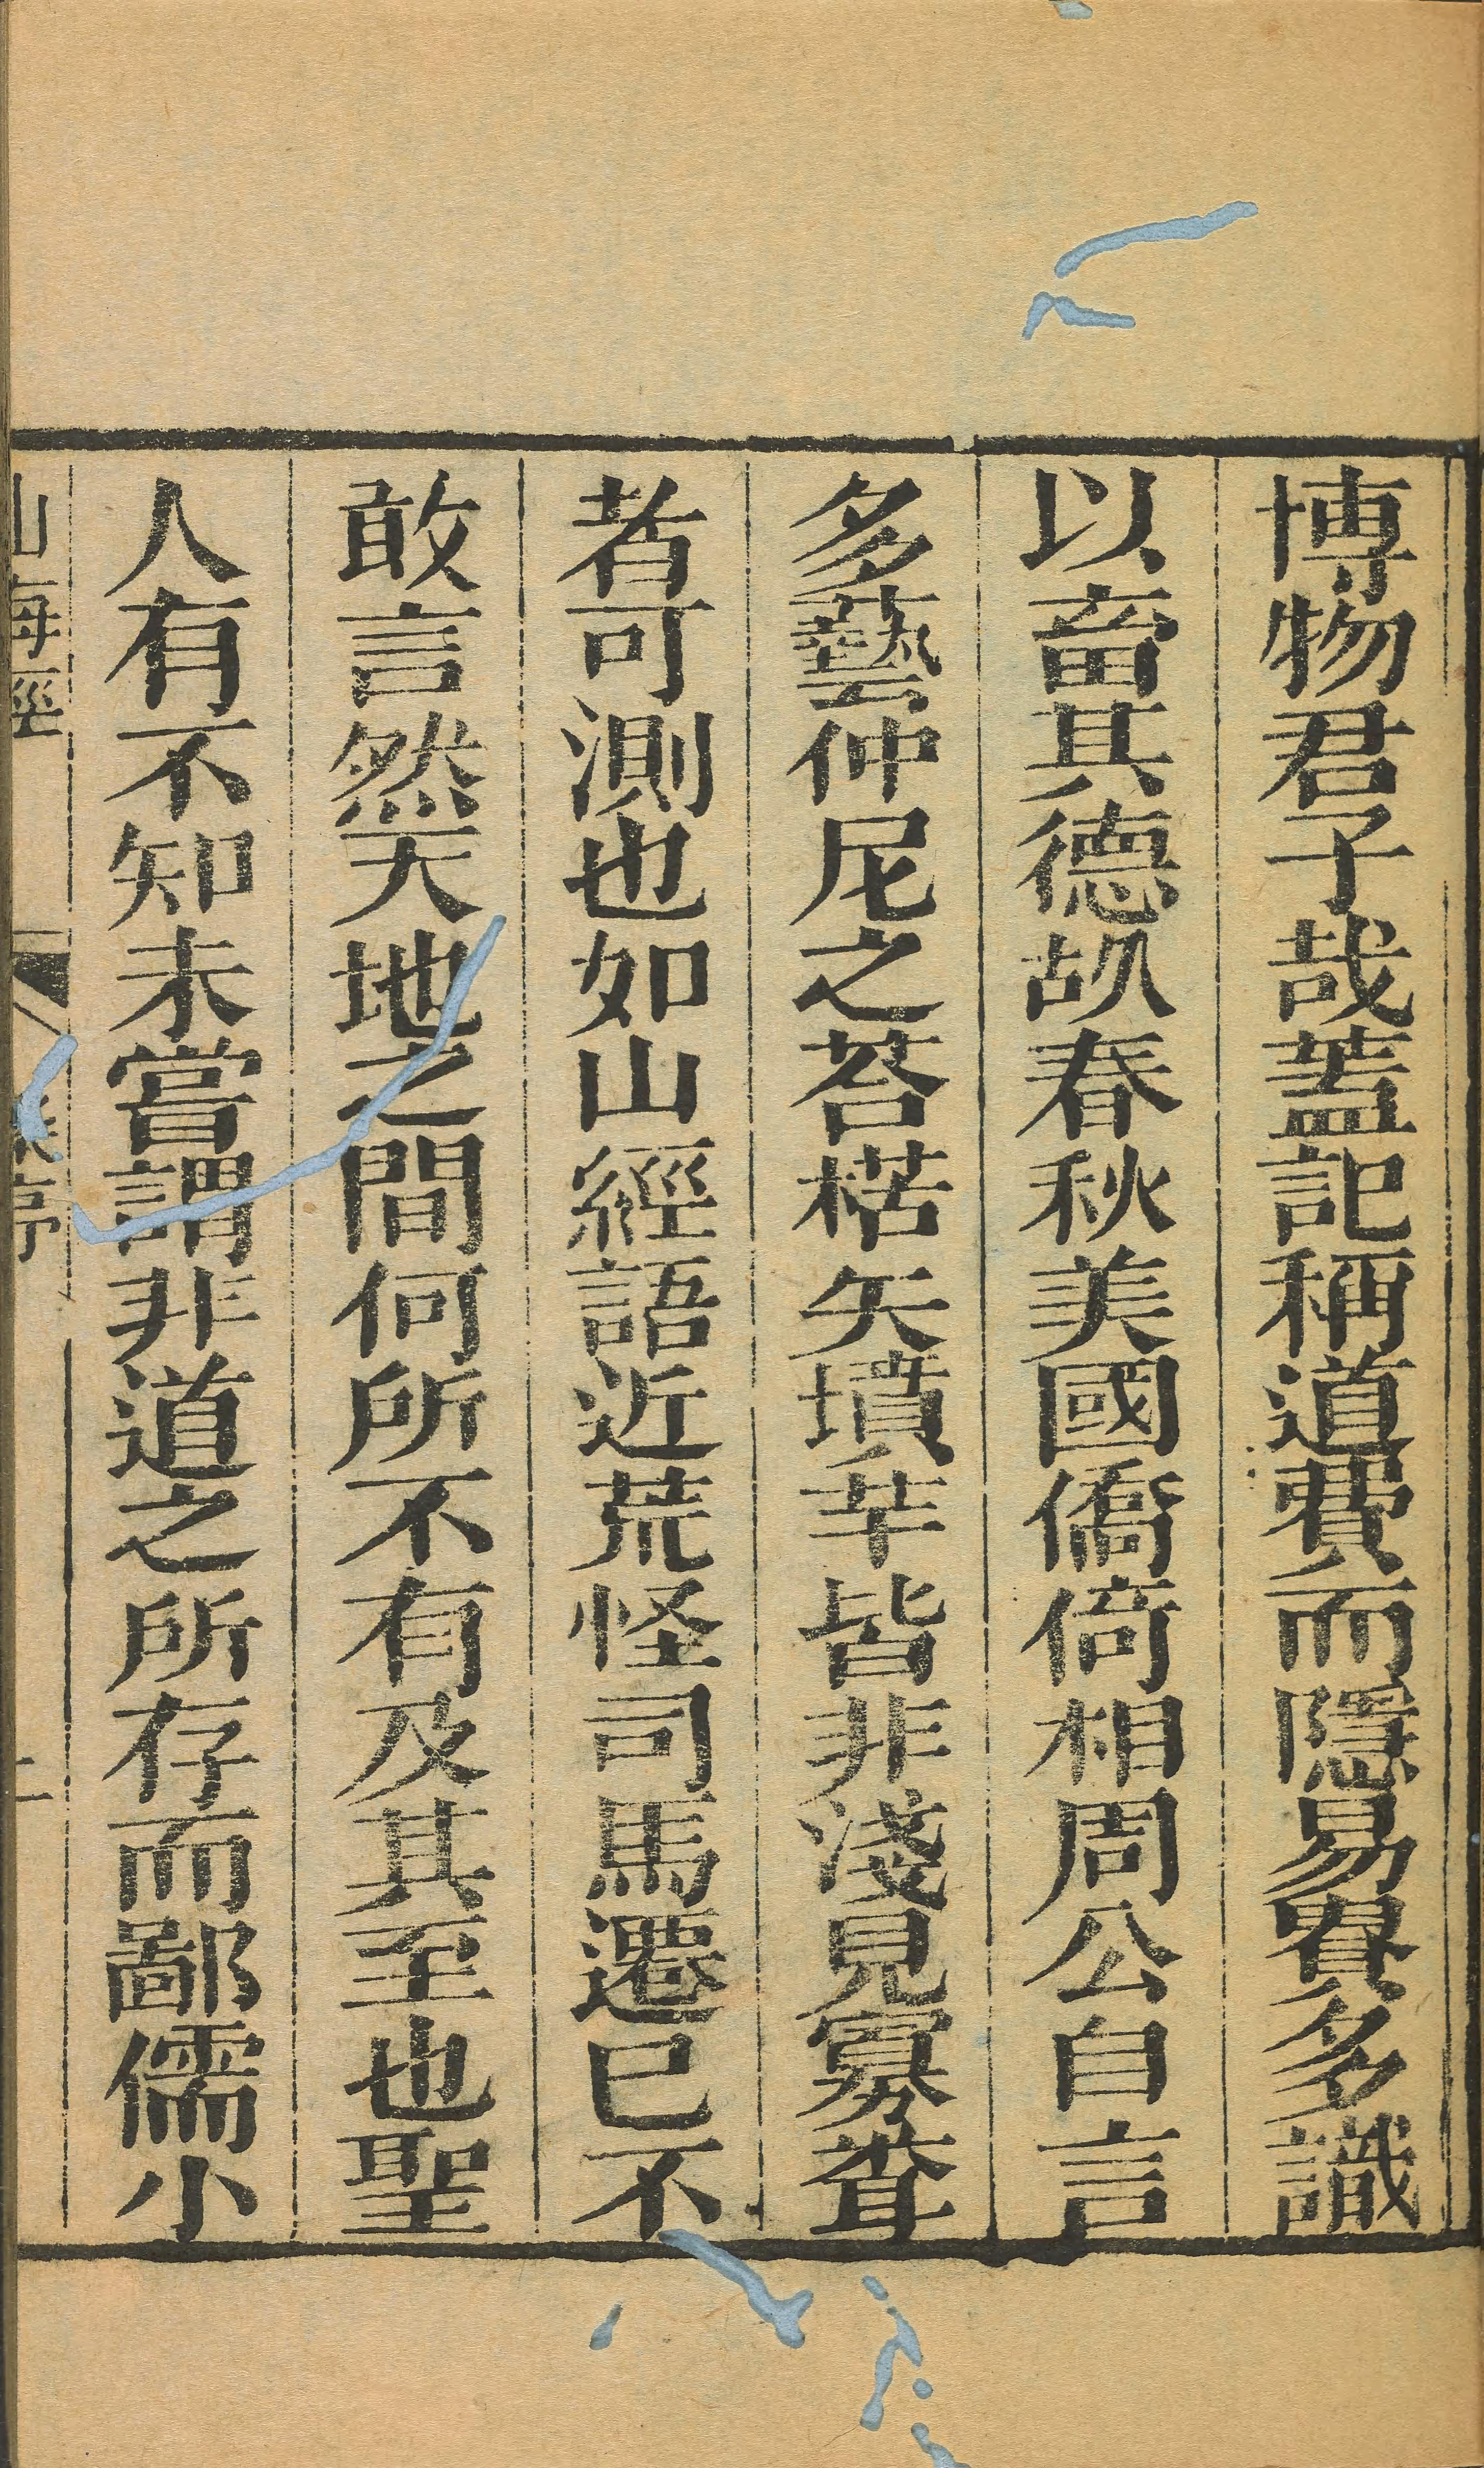 博物君子哉蓋記稱道費而隱易賛多識
以畜其德故春秋美國僑倚相周公自言
多藝仲尼之荅楛矢墳羊皆非淺見寡聞
者可測也如山經語近荒怪司馬遷已不
敢言然天地之間何所不有及其至也聖
人有不知未嘗謂非道之所存而鄙儒小
山海經
序